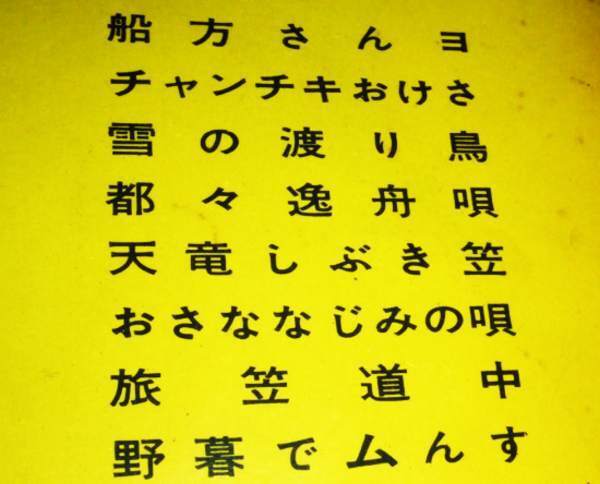 船方さんヨ
チャンチキおけさ
雪の渡り鳥
都々逸舟唄
天竜しぶき笠
おさななじみの唄
旅笠道中
野暮でムんす